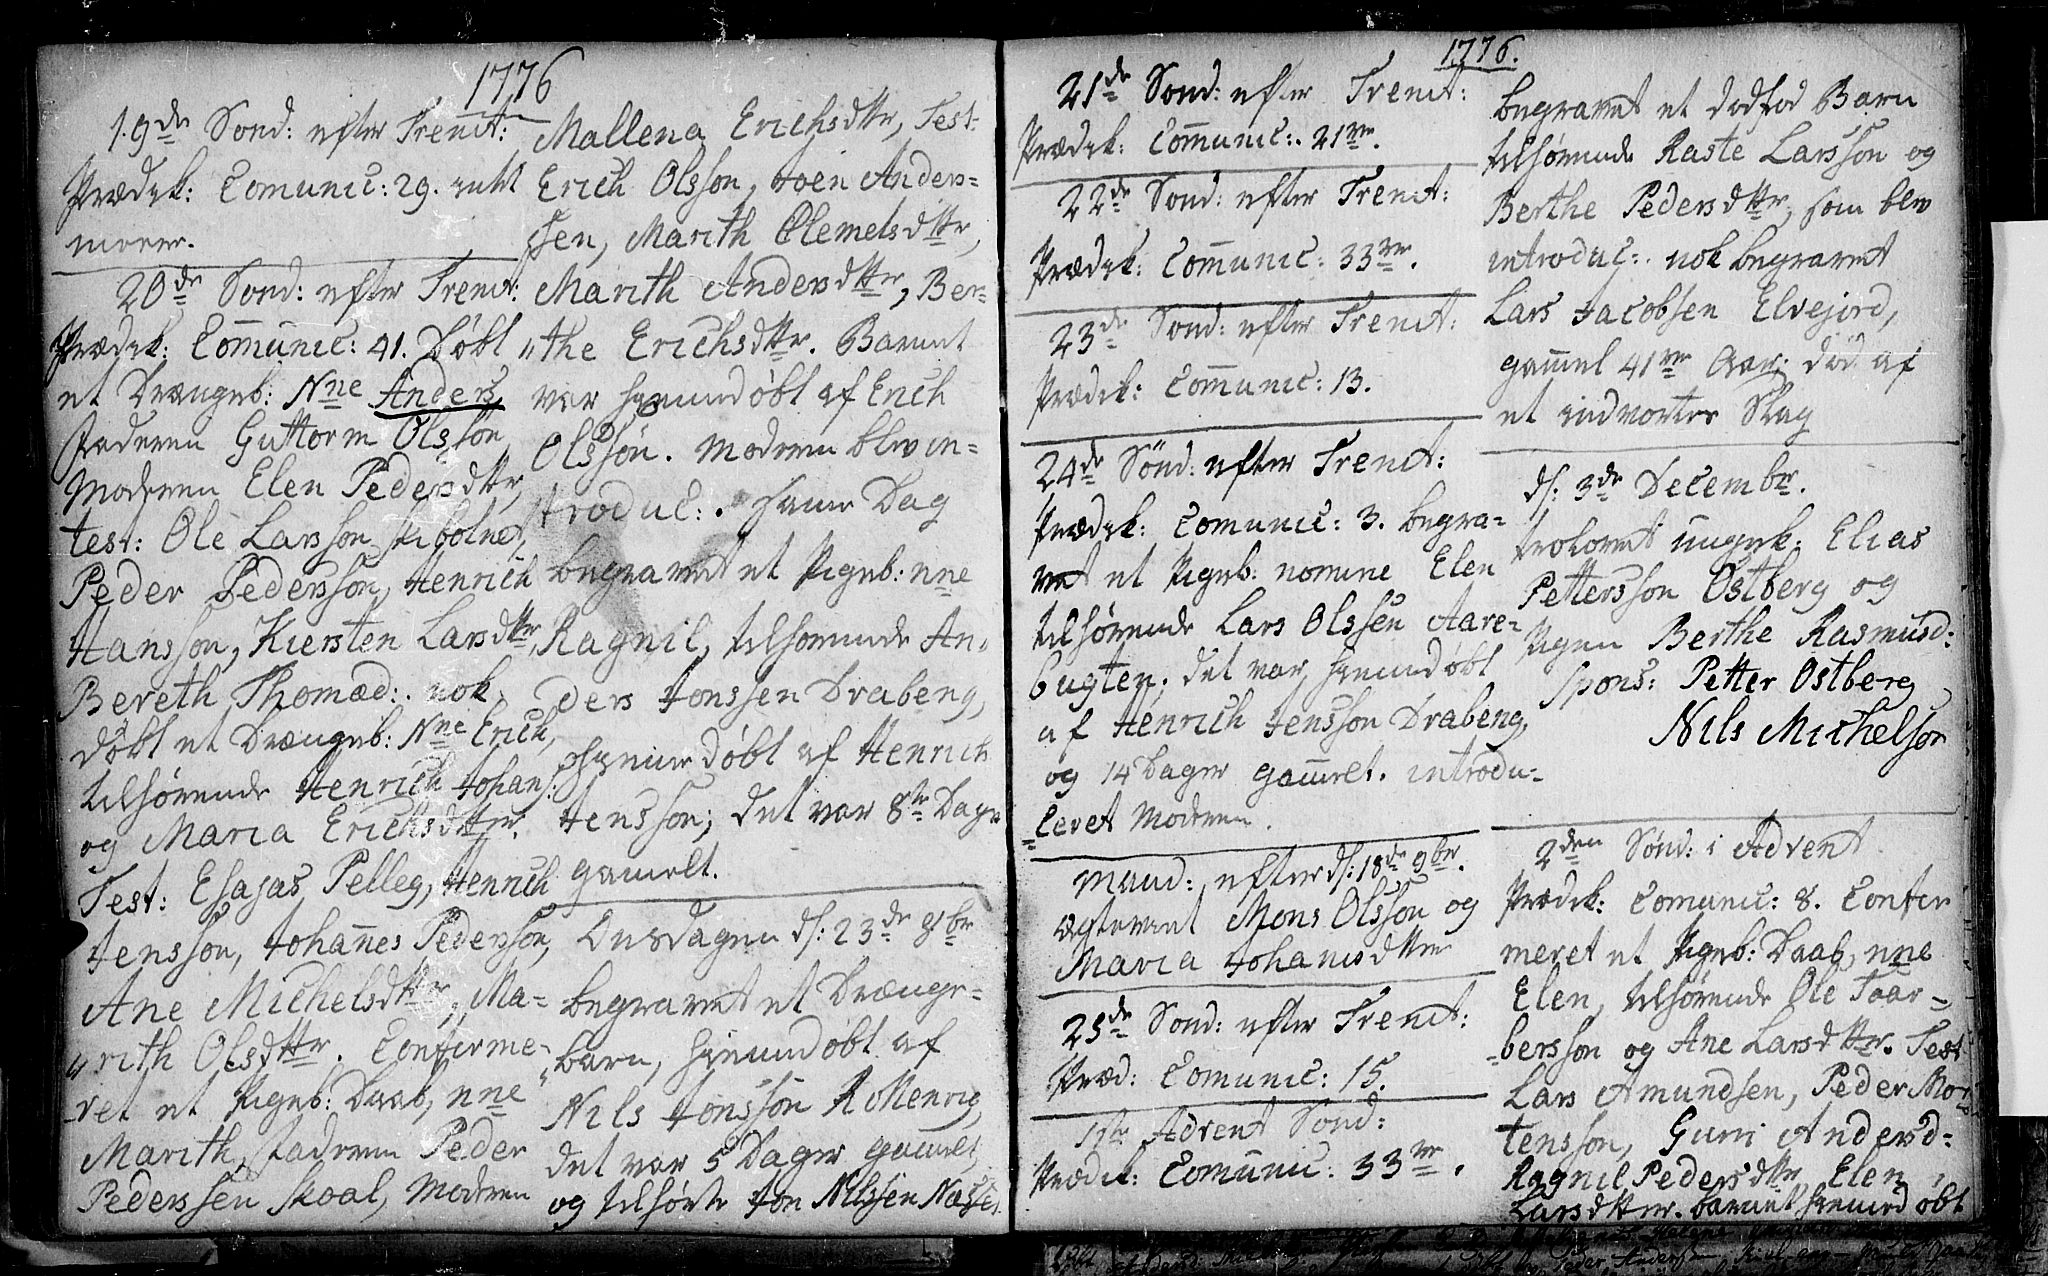 1776
19de Sönd: efter Trenit:
Prædik: Comunic: 29. intet
meere.
20de Sönd: efter Trenit:
Prædik: Comunic: 41. Døbt
et Drængeb: Nne Anders
Faderen Guttorm Olsson
Moderen Elen Pedersdttr,
test: Ole Larsson
Peder Pedersson, Henrich
Hansson, Kiersten Larsdttr,
Bereth Thomæd:. nok
døbt et Drængeb: Nne Erich,
tilhørende Henrich Johans:
og Maria Erichsdttr.
Test: Esajas Pelleg, Henrich
Jensson, Johannes Pedersson,
Ane Michelsdttr, Ma-
"rith Olsdttr. Confirme-
-ret et Pigeb: Daab, nne
Marith, Faderen Peder
Pederssen Skoal, Moderen
Mallena Erichsdttr, Test:
Erich Olsson, Joen Anders-
sen, Marith Clemetsdttr,
Marith Andersdttr, Ber-
"the Erichsdttr. Barnet
var hiemmedøbt af Erich
Olsson. Moderen blev in-
troduc:. samme Dag
begravet et Pigeb: nne
Ragnil, tilhørende An-
ders Jonssen Drabeng,
hiemmedøbt af Henrich
Jensson; det var 8te Dage
gamelt.
Onsdagen d: 23de 8br
begravet et Drænge-
"barn, hiemmedøbt af
Nils Jonsson Rottenvig,
det var 5 Dager gamelt,
og tilhørte Jon Nilssen
1776.
21de Sönd: efter Trenit:
Prædik: Comunic:. 21ve.
22de Sönd: efter Trenit:
Prædik: Comunic: 33ve.
23de Sönd: efter Trenit:
Prædik: Comunic: 13.
24de Sönd: efter Trenit:
Prædik: Comunic: 3. begra-
vet et Pigeb: nomine Elen
tilhørende Lars Olssen Aare-
bugten. det var hiemmedøbt
af Henrich Jensson Drabeng,
og 14 Dager gamelt. introdu-
ceret Moderen.
Mand: efter d: 18de 9br.
Ægteviet Mons Olsson og
Maria Johanisdtter
25de Sönd: efter Trenit:
Præd: Comunic: 15.
1ste Advent Sönd:
Prædik: Comunic: 33ve.
begravet et dødfød Barn
tilhørende Raste Larsson og
Berthe Pedersdttr, som blev
introduc:. nok begravet
Lars Jacobsen Elvejord,
gamel 41ve Aar; død af
et indvortes Slag
d: 3de Decembr.
trolovet ungek: Elias
Pettersson Ostberg og
Pigen Berthe Rasmusd:
Spons: Petter Ostberg
Nils Michelson
2den Sønd: i Advent
Prædik: Comunic: 8. Confir
meret et Pigeb: Daab, nne
Elen, tilhørende Ole Toar-
-bersson og Ane Larsdttr. Test
Lars Amundsen, Peder Mor-
tensson, Guri Andersd-
Ragnil Pedersdttr, Elen
Larsdttr. barnet hiemedøbt